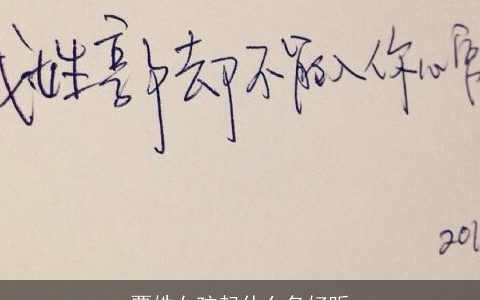 我姓郭却不能入你心
201
姓女孩起什么名好听